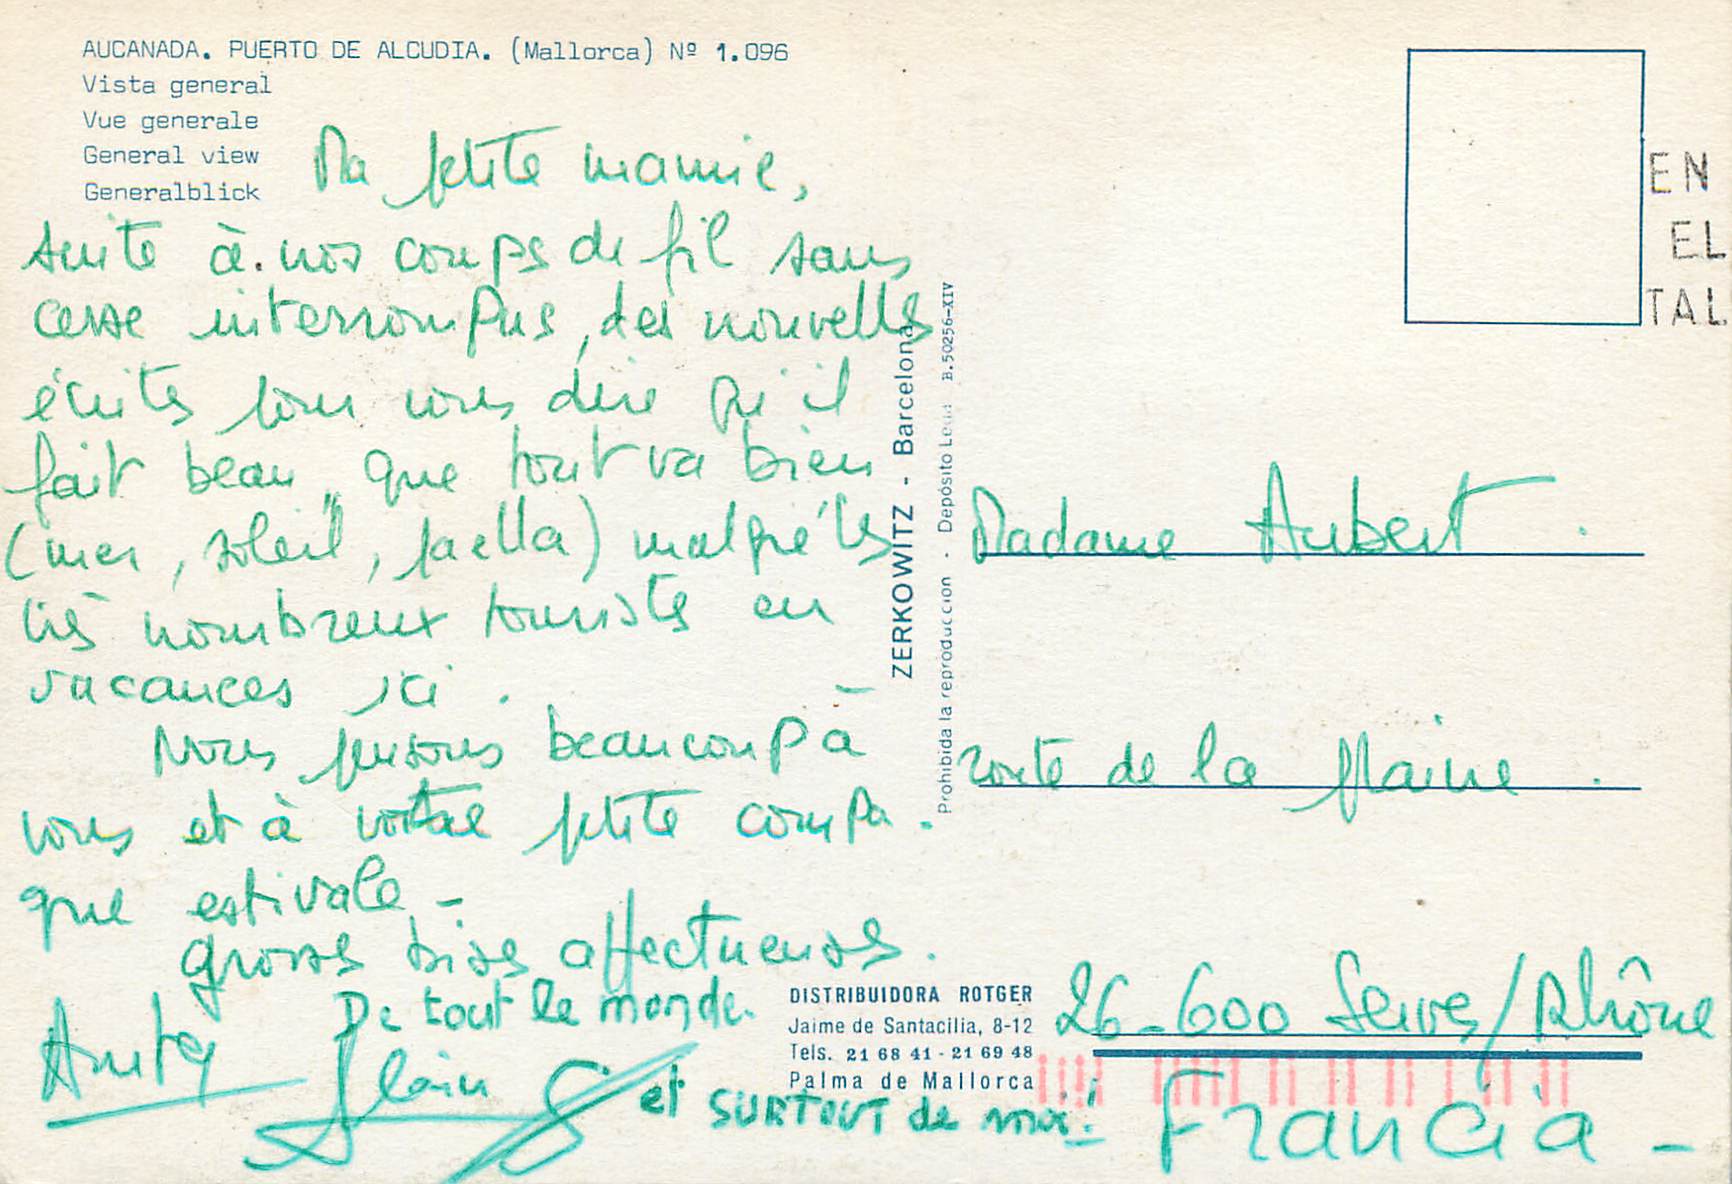 AUCANADA. PUERTO DE ALCUDIA. (Mallorca) Nº 1.096
Vista general
Vue generale
General view
Generalblick
Ma petite mamie,
suite à nos coups de fil sans
cesse interrompus, des nouvelles
écrites pour vous dire qu'il
fait beau, que tout va bien
(mer, soleil, paella) malgré les
très nombreux touristes en
vacances ici.
Nous pensons beaucoup à
vous et à votre petite compa-
gne estivale -
grosses bises affectueuses.
De tout le monde.
Anita
Alain
et SURTOUT de moi!
ZERKOWITZ - Barcelona
Prohibida la reproduccion - Depósito Legal B. 50256-XIV
DISTRIBUIDORA ROTGER
Jaime de Santacilia, 8-12
Tels. 21 68 41 - 21 69 48
Palma de Mallorca
EN
EL
TAL
Madame Aubert.
route de la Plaine.
26-600 Serves/Rhône
Francia -